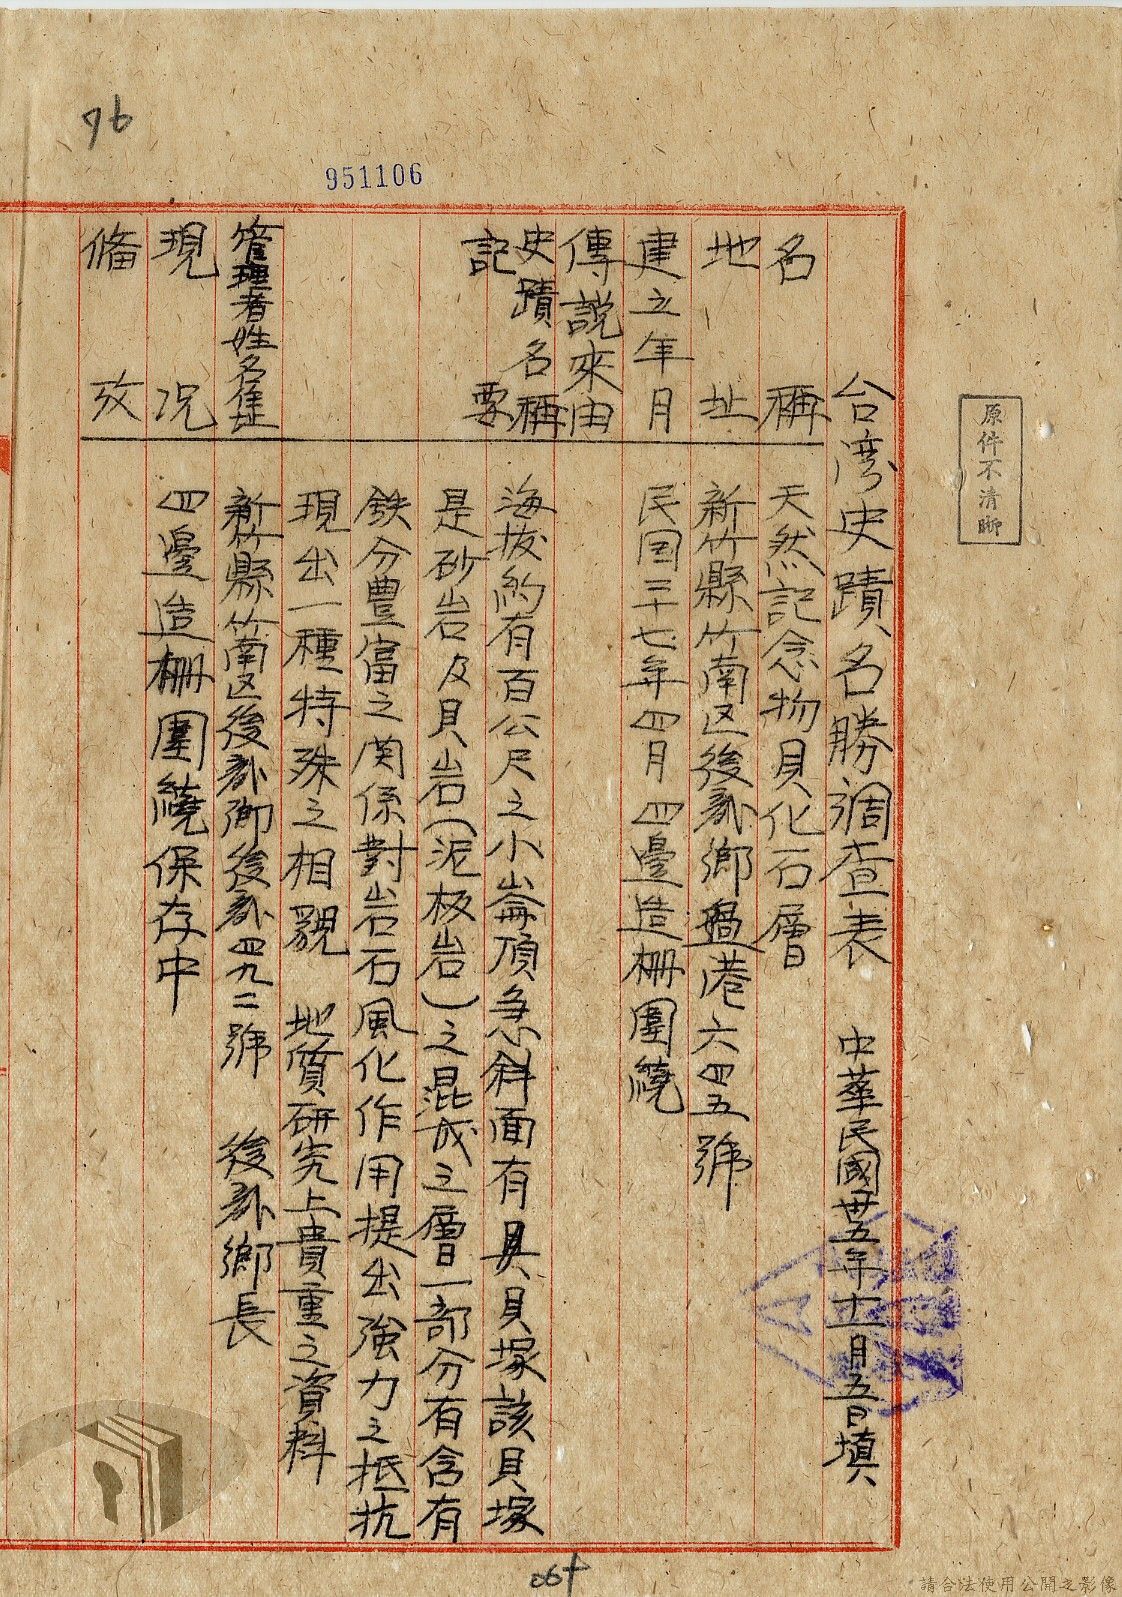 76
951106
原件不清晰
台湾史蹟名勝調查表　中華民國卅五年十一月五日填
名稱　天然記念物貝化石層
地址　新竹縣竹南区後龍鄉過港六四五號
建立年月　民国三十七年四月四邊造柵圍繞
傳說來由
史蹟名稱記要　海拔約有百公尺之小崙頂急斜面有具貝塚該貝塚
是砂岩及貝岩(泥板岩)之混成之層一部分有含有
鉄分豊富之関係對岩石風化作用提出強力之抵抗
現出一種特殊之相貌　地質研究上貴重之資料
管理者姓名住址　新竹縣竹南区後龍鄉後龍四九二號　後龍鄉長
現況　四邊造柵圍繞保存中
備攷
請合法使用公開之影像